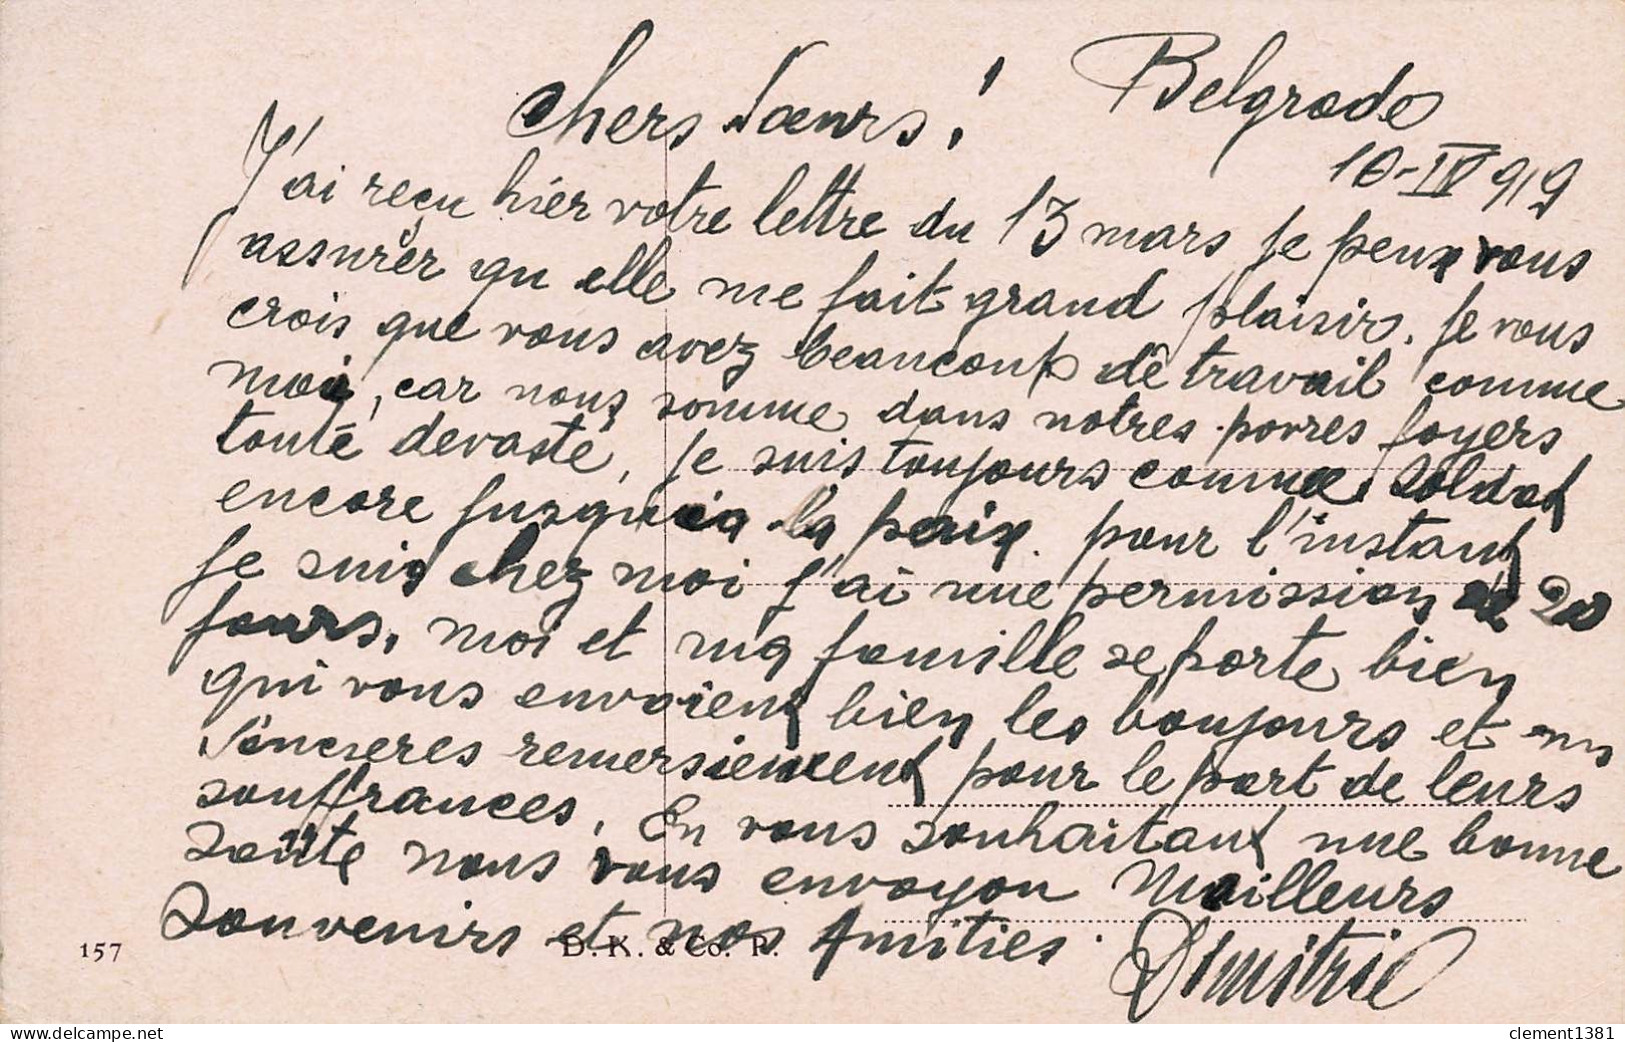 Belgrade
Chers Sœurs!
10-IV 919
J'ai reçu hier votre lettre du 13 mars je peux vous
assurer qu elle me fait grand plaisir. Je vous
crois que vous avez beaucoup de travail comme
moi, car nous somme dans notres povres foyers
touté devasté, je suis toujours comme soldat
encore jusqu'a la paix. pour l'instant
je suis chez moi j'ai une permission de 20
jours. moi et ma famille se porte bien
qui vous envoient bien les boujours et
Sinceres remersiement pour le part de leurs
souffrances. En vous souhaitant une bonne
santé nous vous envoyon Meilleurs
Souvenirs et nos Amities.
Dimitrie
157
D. K. & Co. P.
clement1381